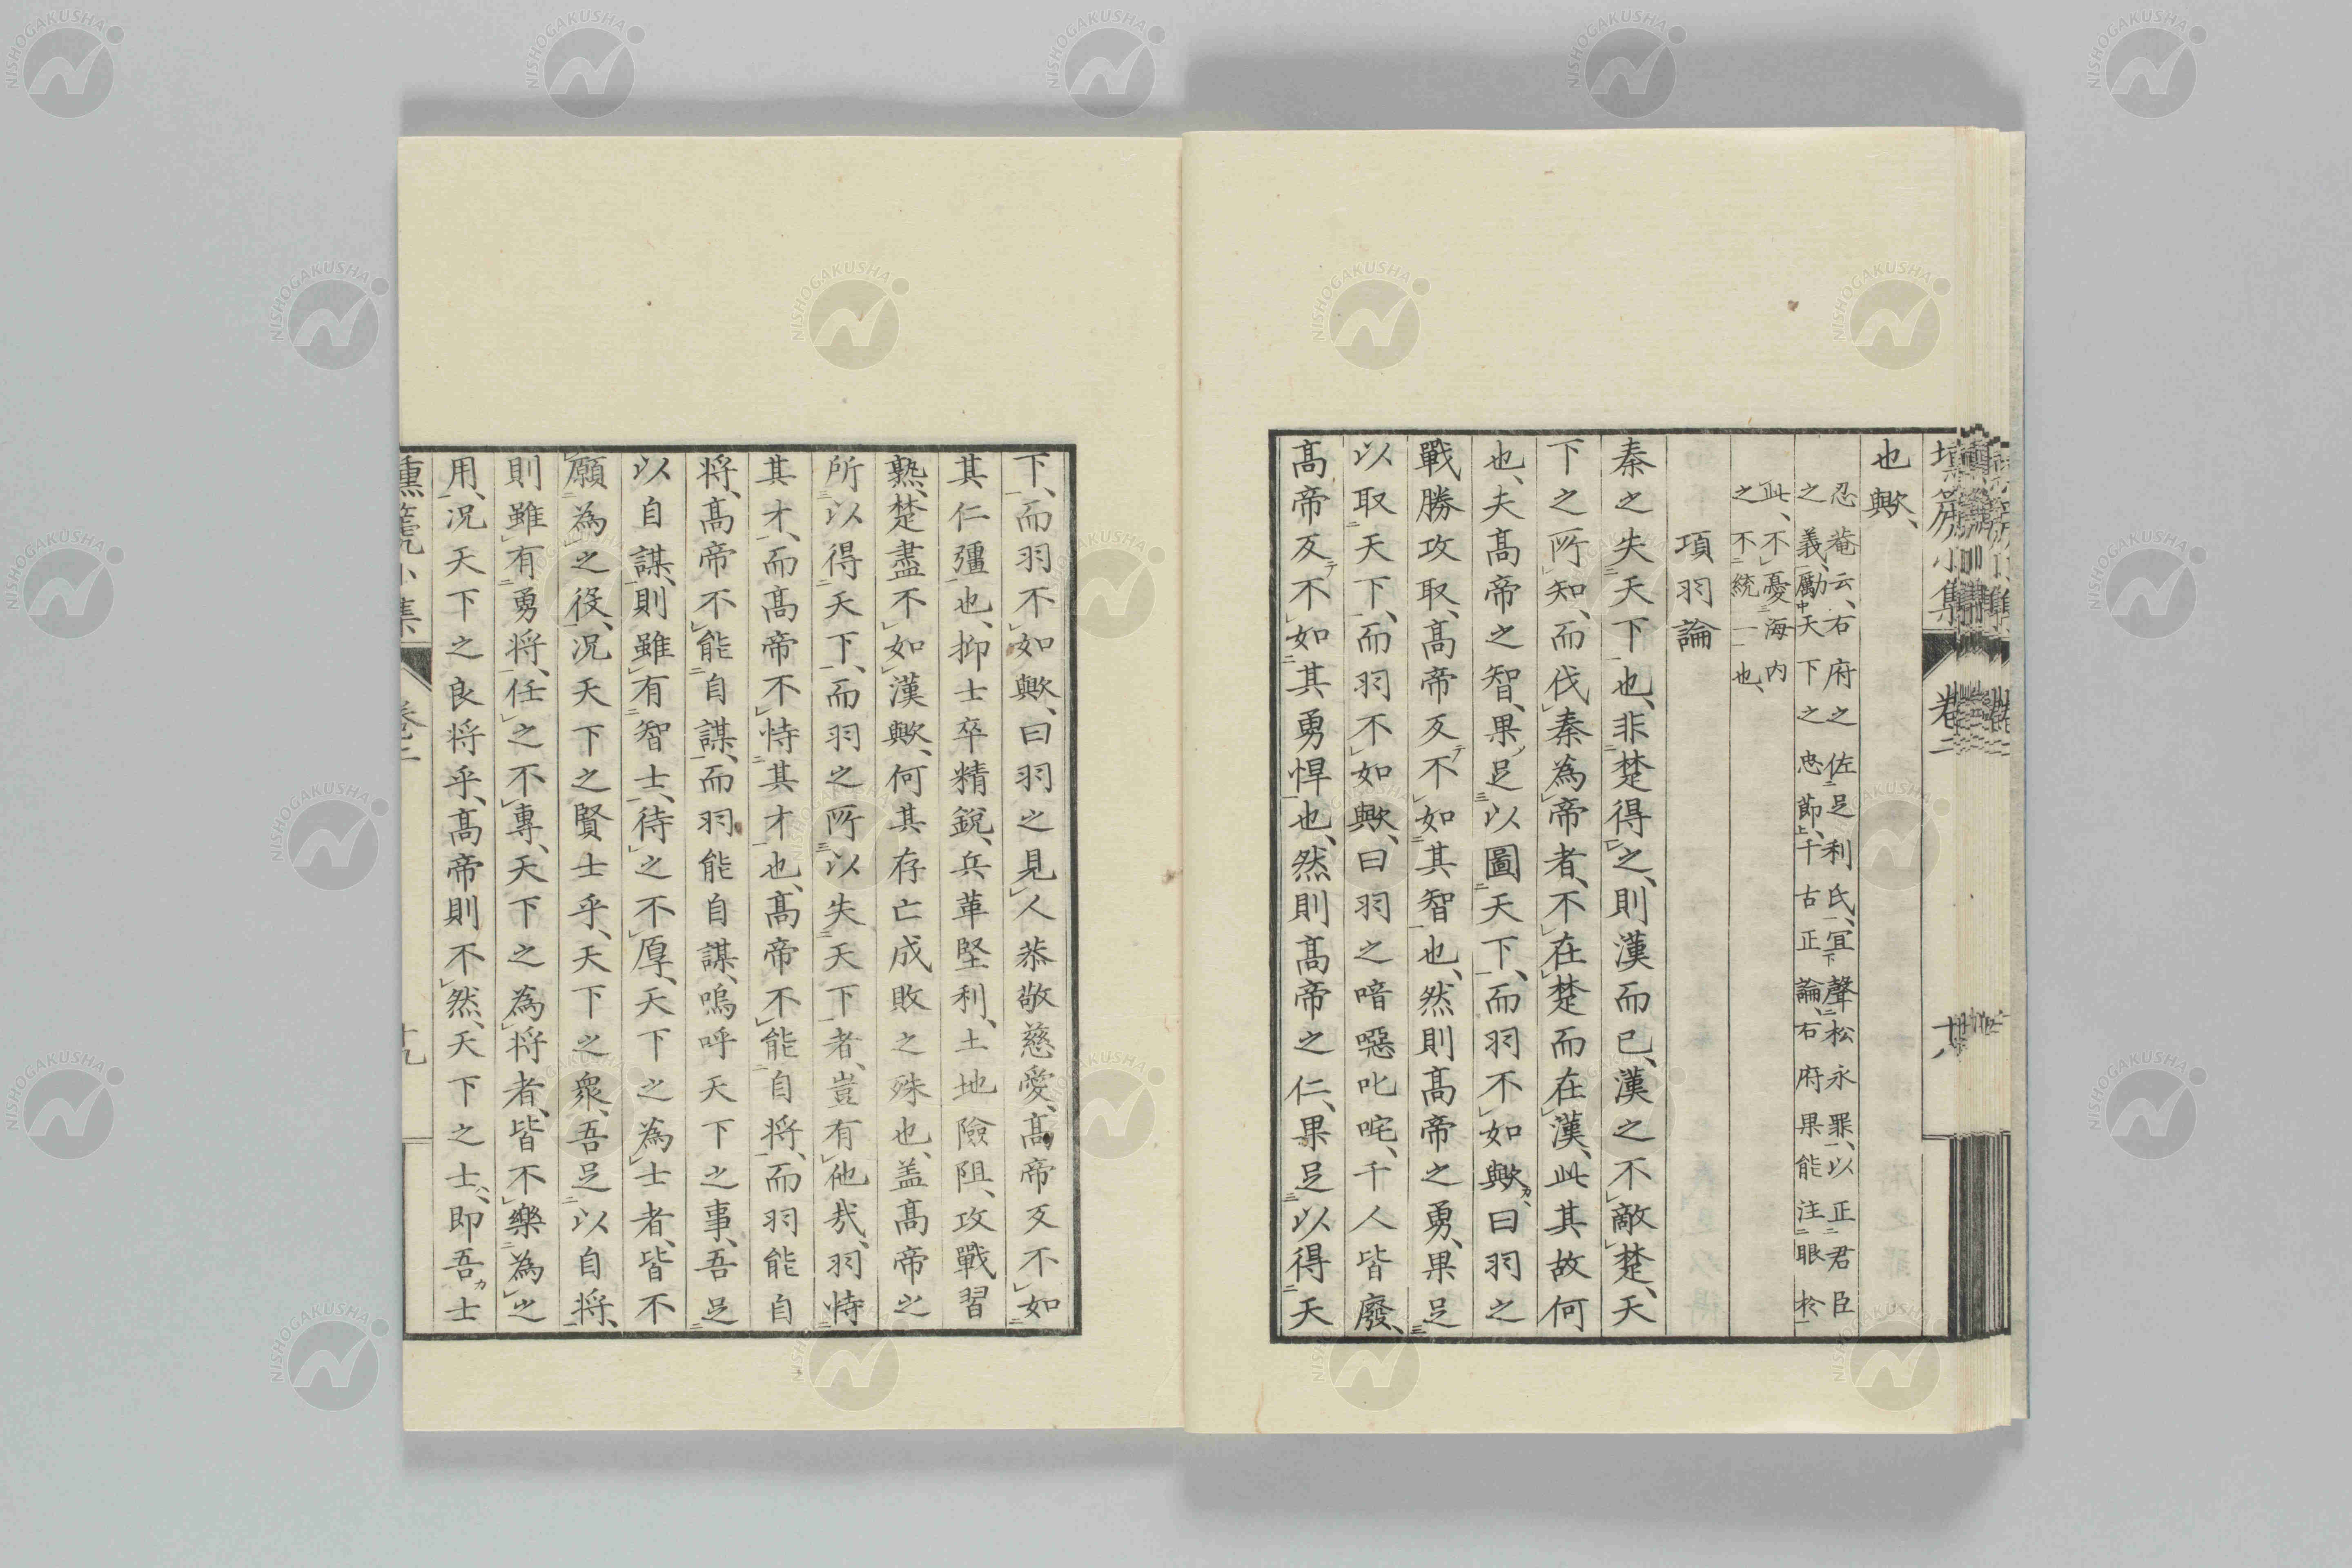 也歟、
忍菴云、右府之佐足利氏、宜聲松永罪、以正君臣
之義、勵天下之忠節、千古正論、右府果能注眼於
此、不憂海内
之不統一也、
項羽論
秦之失天下也、非楚得之、則漢而已、漢之不敵楚、天
下之所知、而伐秦為帝者、不在楚而在漢、此其故何
也、夫高帝之智、果足以圖天下、而羽不如歟、曰羽之
戰勝攻取、高帝反不如其智也、然則高帝之勇、果足
以取天下、而羽不如歟、曰羽之喑噁叱咤、千人皆廢、
高帝反不如其勇悍也、然則高帝之仁、果足以得天
下、而羽不如歟、曰羽之見人恭敬慈愛、高帝反不如
其仁彊也、抑士卒精銳、兵革堅利、土地險阻、攻戰習
熟、楚盡不如漢歟、何其存亡成敗之殊也、蓋高帝之
所以得天下、而羽之所以失天下者、豈有他哉、羽恃
其才、而高帝不恃其才也、高帝不能自将、而羽能自
将、高帝不能自謀、而羽能自謀、嗚呼天下之事、吾足
以自謀、則雖有智士、待之不厚、天下之為士者、皆不
願為之役、況天下之賢士乎、天下之衆、吾足以自将、
則雖有勇将、任之不專、天下之為将者、皆不樂為之
用、況天下之良将乎、高帝則不然、天下之士、即吾士
塤篪小集 卷二
NISHOGAKUSHA